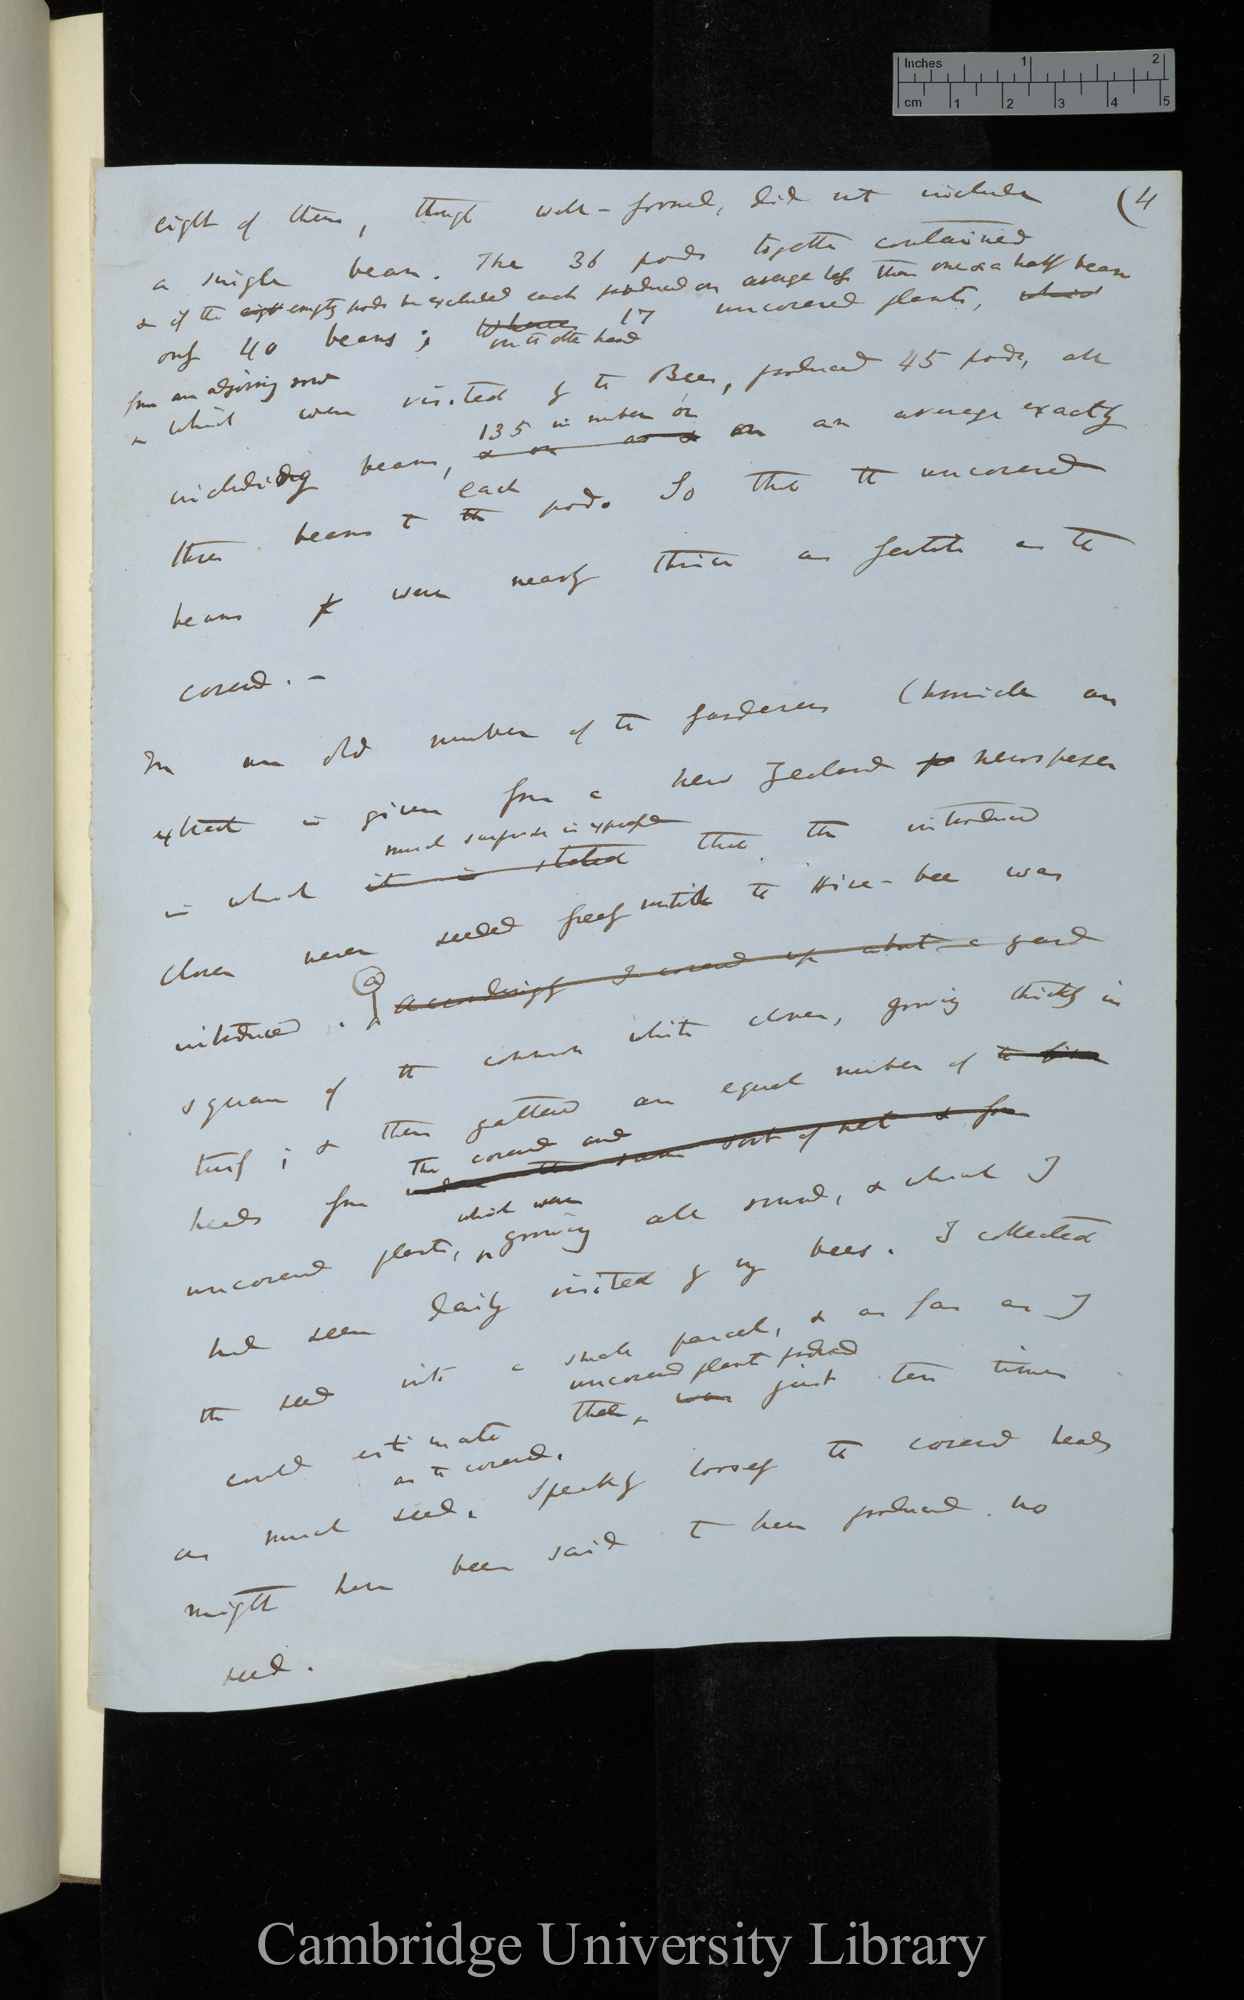 Inches 1 2
cm 1 2 3 4 5
(4
eight of them, though well-formed, did not include
a single bean. The 36 pods together contained
& if the eight empty pods be excluded each produced on average less than one & a half bean
only 40 beans; Where 17 uncovered plants, which
on the other hand
from an adjoining row
& which were visited by the Bees, produced 45 pods, all
135 in number or
including beans, & on an average exactly
each
three beans to the pod. So that the uncovered
beans were nearly thrice as fertile as the
covered. —
In an old number of the Gardeners Chronicle an
extract is given from a New Zealand newspaper
much surprise is expressed
in which it is stated that the introduced
clover never seeded freely until the Hive-bee was
introduced. (a) Accordingly I covered up about a yard
square of the common white clover, growing thickly in
turf; & then gathered an equal number of the
the covered and
heads from under the same sort of net & from
which were
uncovered plants, growing all round, & which I
had seen daily visited by my bees. I collected
the seed into a small parcel, & as far as I
uncovered plants produced
could estimate that, was just ten times
as the covered.
as much seed. Speaking loosely the covered heads
might have been said to have produced no
seed.
Cambridge University Library